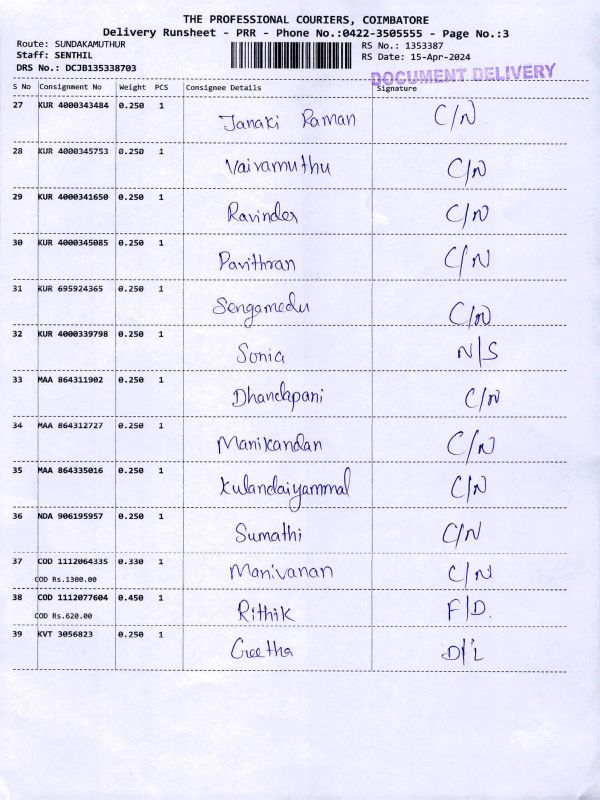 THE PROFESSIONAL COURIERS, COIMBATORE
Delivery Runsheet - PRR - Phone No.:0422-3505555 - Page No.:3
Route: SUNDAKAMUTHUR RS No.: 1353387
Staff: SENTHIL RS Date: 15-Apr-2024
DRS No.: DCJB135338703
DOCUMENT DELIVERY
S No Consignment No Weight PCS Consignee Details Signature
27 KUR 4000343484 0.250 1 Janaki Raman C/N
28 KUR 4000345753 0.250 1 Vaivamuthu C/N
29 KUR 4000341650 0.250 1 Ravinder C/N
30 KUR 4000345085 0.250 1 Pavithran C/N
31 KUR 695924365 0.250 1 Sengamedu C/N
32 KUR 4000339798 0.250 1 Sonia N/S
33 MAA 864311902 0.250 1 Dhandapani C/N
34 MAA 864312727 0.250 1 Manikandan C/N
35 MAA 864335016 0.250 1 Kulandaiyammal C/N
36 NDA 906195957 0.250 1 Sumathi C/N
37 COD 1112064335 0.330 1 Manivanan C/N
COD Rs.1300.00
38 COD 1112077604 0.450 1 Rithik F/D.
COD Rs.620.00
39 KVT 3056823 0.250 1 Geetha D/L